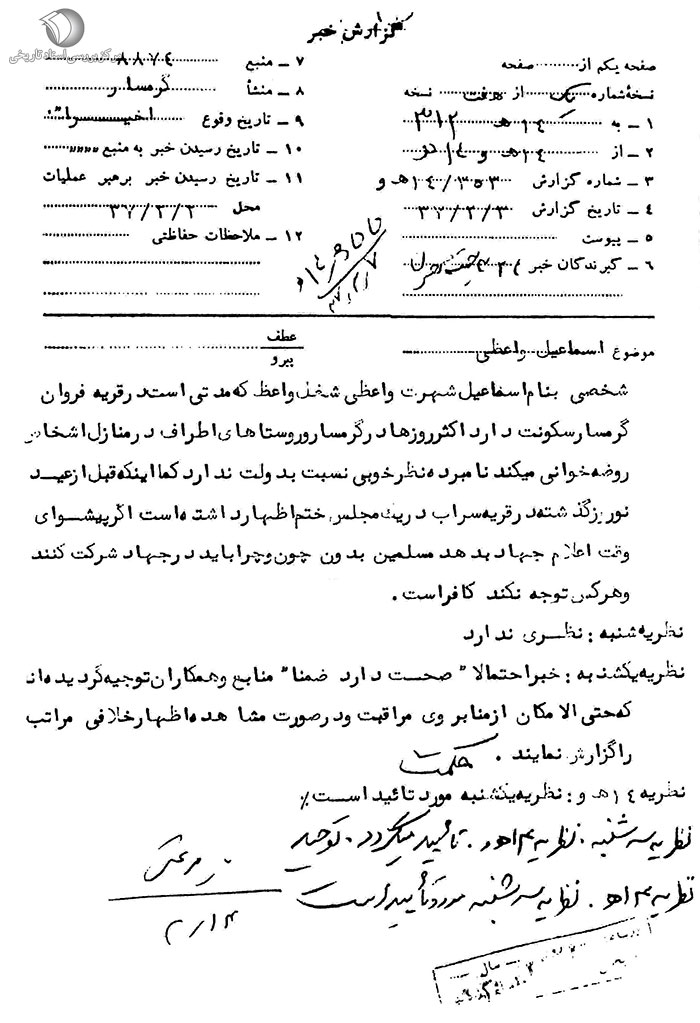 مرکز بررسی اسناد تاریخی
گزارش خبر
صفحه یکم از صفحه
نسخهٔ شماره یک از هفت نسخه
۱ ـ به ۱۴ هـ ۳۱۲
۲ ـ از ۱۴ هـ و
۳ ـ شماره گزارش ۱۴/۳۵۳ هـ و
۴ ـ تاریخ گزارش ۳۷/۳/۳
۵ ـ پیوست
۶ ـ گیرندگان خبر
۷ ـ منبع ۸۸۷۴
۸ ـ منشأ گرمسار
۹ ـ تاریخ وقوع اخیرا"
۱۰ ـ تاریخ رسیدن خبر به منبع """"
۱۱ ـ تاریخ رسیدن خبر برهبر عملیات
محل ۳۷/۳/۲
۱۲ ـ ملاحظات حفاظتی
موضوع اسماعیل واعظی
عطف
پیرو
شخصی بنام اسماعیل شهرت واعظی شغل واعظ که مدتی است در قریه فروان
گرمسار سکونت دارد اکثر روزها در گرمسار و روستاهای اطراف در منازل اشخاص
روضه خوانی میکند نامبرده نظر خوبی نسبت بدولت ندارد کما اینکه قبل از عید
نوروز گذشته در قریه سراب در یک مجلس ختم اظهار داشته است اگر پیشوای
وقت اعلام جهاد بدهد مسلمین بدون چون و چرا باید در جهاد شرکت کنند
و هرکس توجه نکند کافر است .
نظریه شنبه : نظری ندارد
نظریه یکشنبه : خبر احتمالا" صحت دارد ضمنا" منابع و همکاران توجیه گردیده اند
که حتی الامکان از منابر وی مراقبت و در صورت مشاهده اظهار خلافی مراتب
را گزارش نمایند . حکمت
نظریه ۱۴ هـ و : نظریه یکشنبه مورد تائید است ٪
نظریه سه شنبه . نظریه ۱۴ هـ و . تأیید میگردد . توحید
نظریه ۱۴ هـ . نظریه سه شنبه مورد تأیید است
۲/۱۴
سال